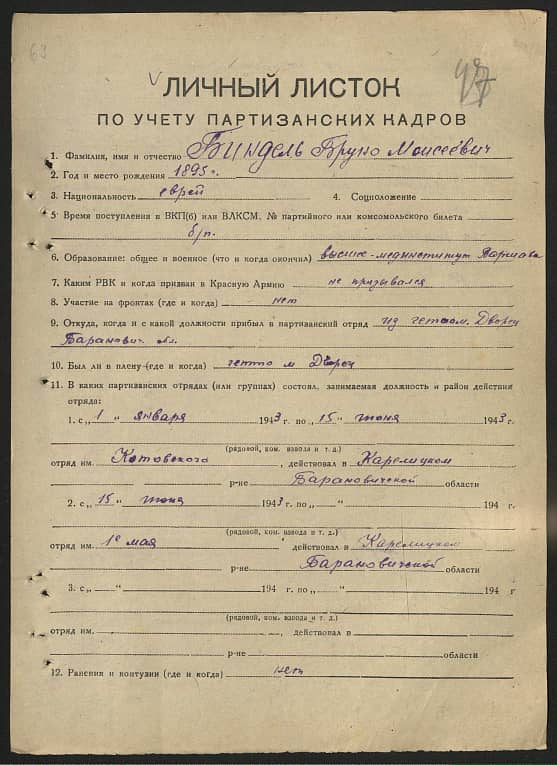 63
47
ЛИЧНЫЙ ЛИСТОК
ПО УЧЕТУ ПАРТИЗАНСКИХ КАДРОВ
1. Фамилия, имя и отчество Биндель Бруно Моисеевич
2. Год и место рождения 1895 г.
3. Национальность еврей 4. Соцположение
5. Время поступления в ВКП(б) или ВЛКСМ, № партийного или комсомольского билета
б/п.
6. Образование: общее и военное (что и когда окончил) высшее-мединститут Варшава
7. Каким РВК и когда призван в Красную Армию не призывался
8. Участие на фронтах (где и когда) нет
9. Откуда, когда и с какой должности прибыл в партизанский отряд из гетто м. Дворец
Баранович. обл.
10. Был ли в плену (где и когда) гетто м Дворец
11. В каких партизанских отрядах (или группах) состоял, занимаемая должность и район действия
отряда:
1. с „ 1 “ января 1943 г. по „ 15 “ июня 1943 г.
(рядовой, ком. взвода и т. д.)
отряд им. Котовского, действовал в Карелицком
р-не Барановичской области
2. с „ 15 “ июня 1943 г. по „ “ 194 г.
(рядовой, ком. взвода и т. д.)
отряд им. 1е мая действовал в Карелицком
р-не Барановичской области
3. с „ “ 194 г. по „ “ 194 г
(рядовой, ком. взвода и т. д.)
отряд им. , действовал в
р-не области
12. Ранения и контузии (где и когда) нет